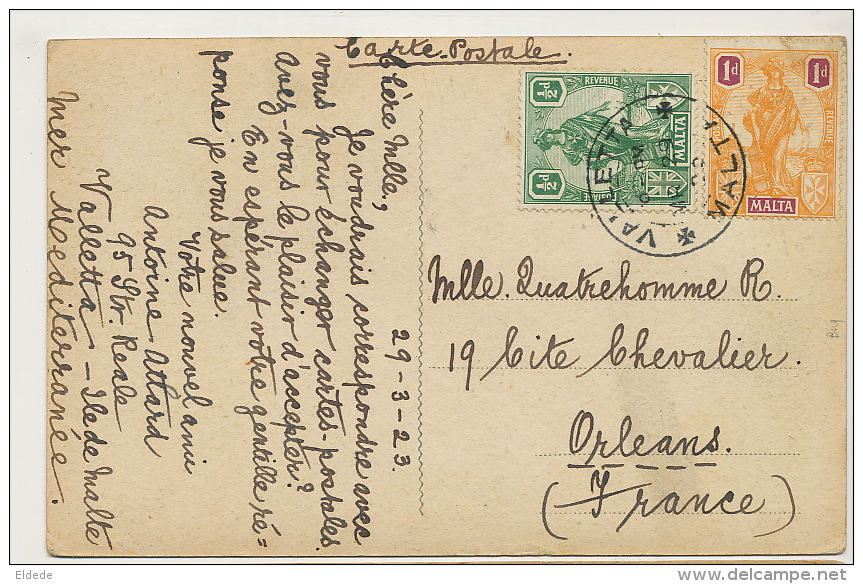 Carte-Postale.
29-3-23.
Chère Mlle.,
Je voudrais correspondre avec
vous pour échanger cartes-postales.
Avez-vous le plaisir d'accepter?
En espérant votre gentille ré=
ponse je vous salue.
Votre nouvel ami
Antoine Attard
95 Str. Reale
Valletta - Ile de Malte
Mer Mediterranée.
REVENUE
½d ½d
MALTA
POSTAGE
1d 1d
REVENUE
MALTA
VALLETTA
MALTA
Mlle. Quatrehomme R.
19 Cite Chevalier.
Orleans.
(France)
Eldede
www.delcampe.net